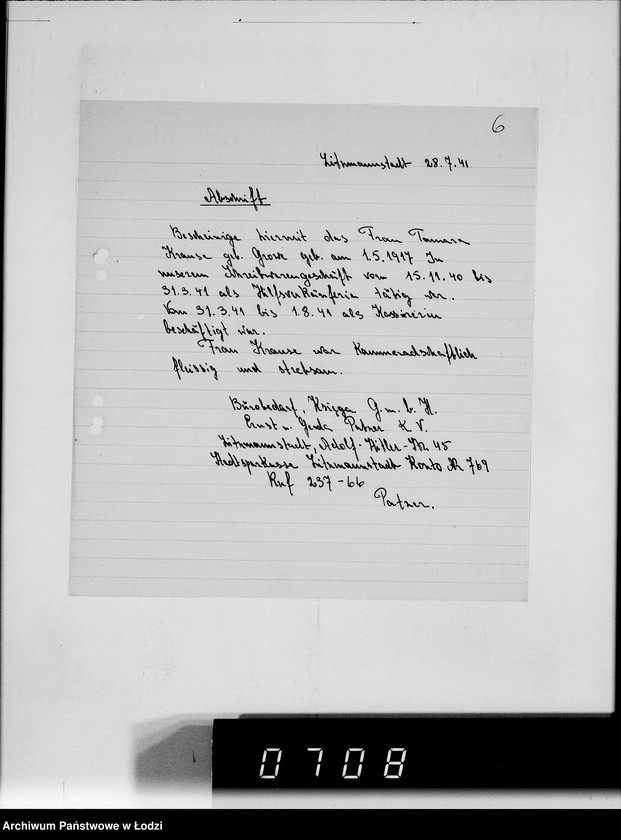 6
Litzmannstadt 28.7.41
Abschrift
Bescheinige hiermit das Frau Tamara
Krause geb. Grose geb. am 1.5.1917 In
unserem Schreibwarengeschäft vom 15.11.40 bis
31.3.41 als Hilfsverkäuferin tätig war.
Vom 31.3.41 bis 1.8.41 als Kassiererin
beschäftigt war.
Frau Krause war Kammeradschaftlich
fleissig und strebsam.
Bürobedarf, Księga G.m.b.H.
Ernst u. Gerda Patzer K.V.
Litzmannstadt, Adolf-Hitler-Str. 45
Stadtsparkasse Litzmannstadt Konto Nr 769
Ruf 237-66
Patzer.
0708
Archiwum Państwowe w Łodzi